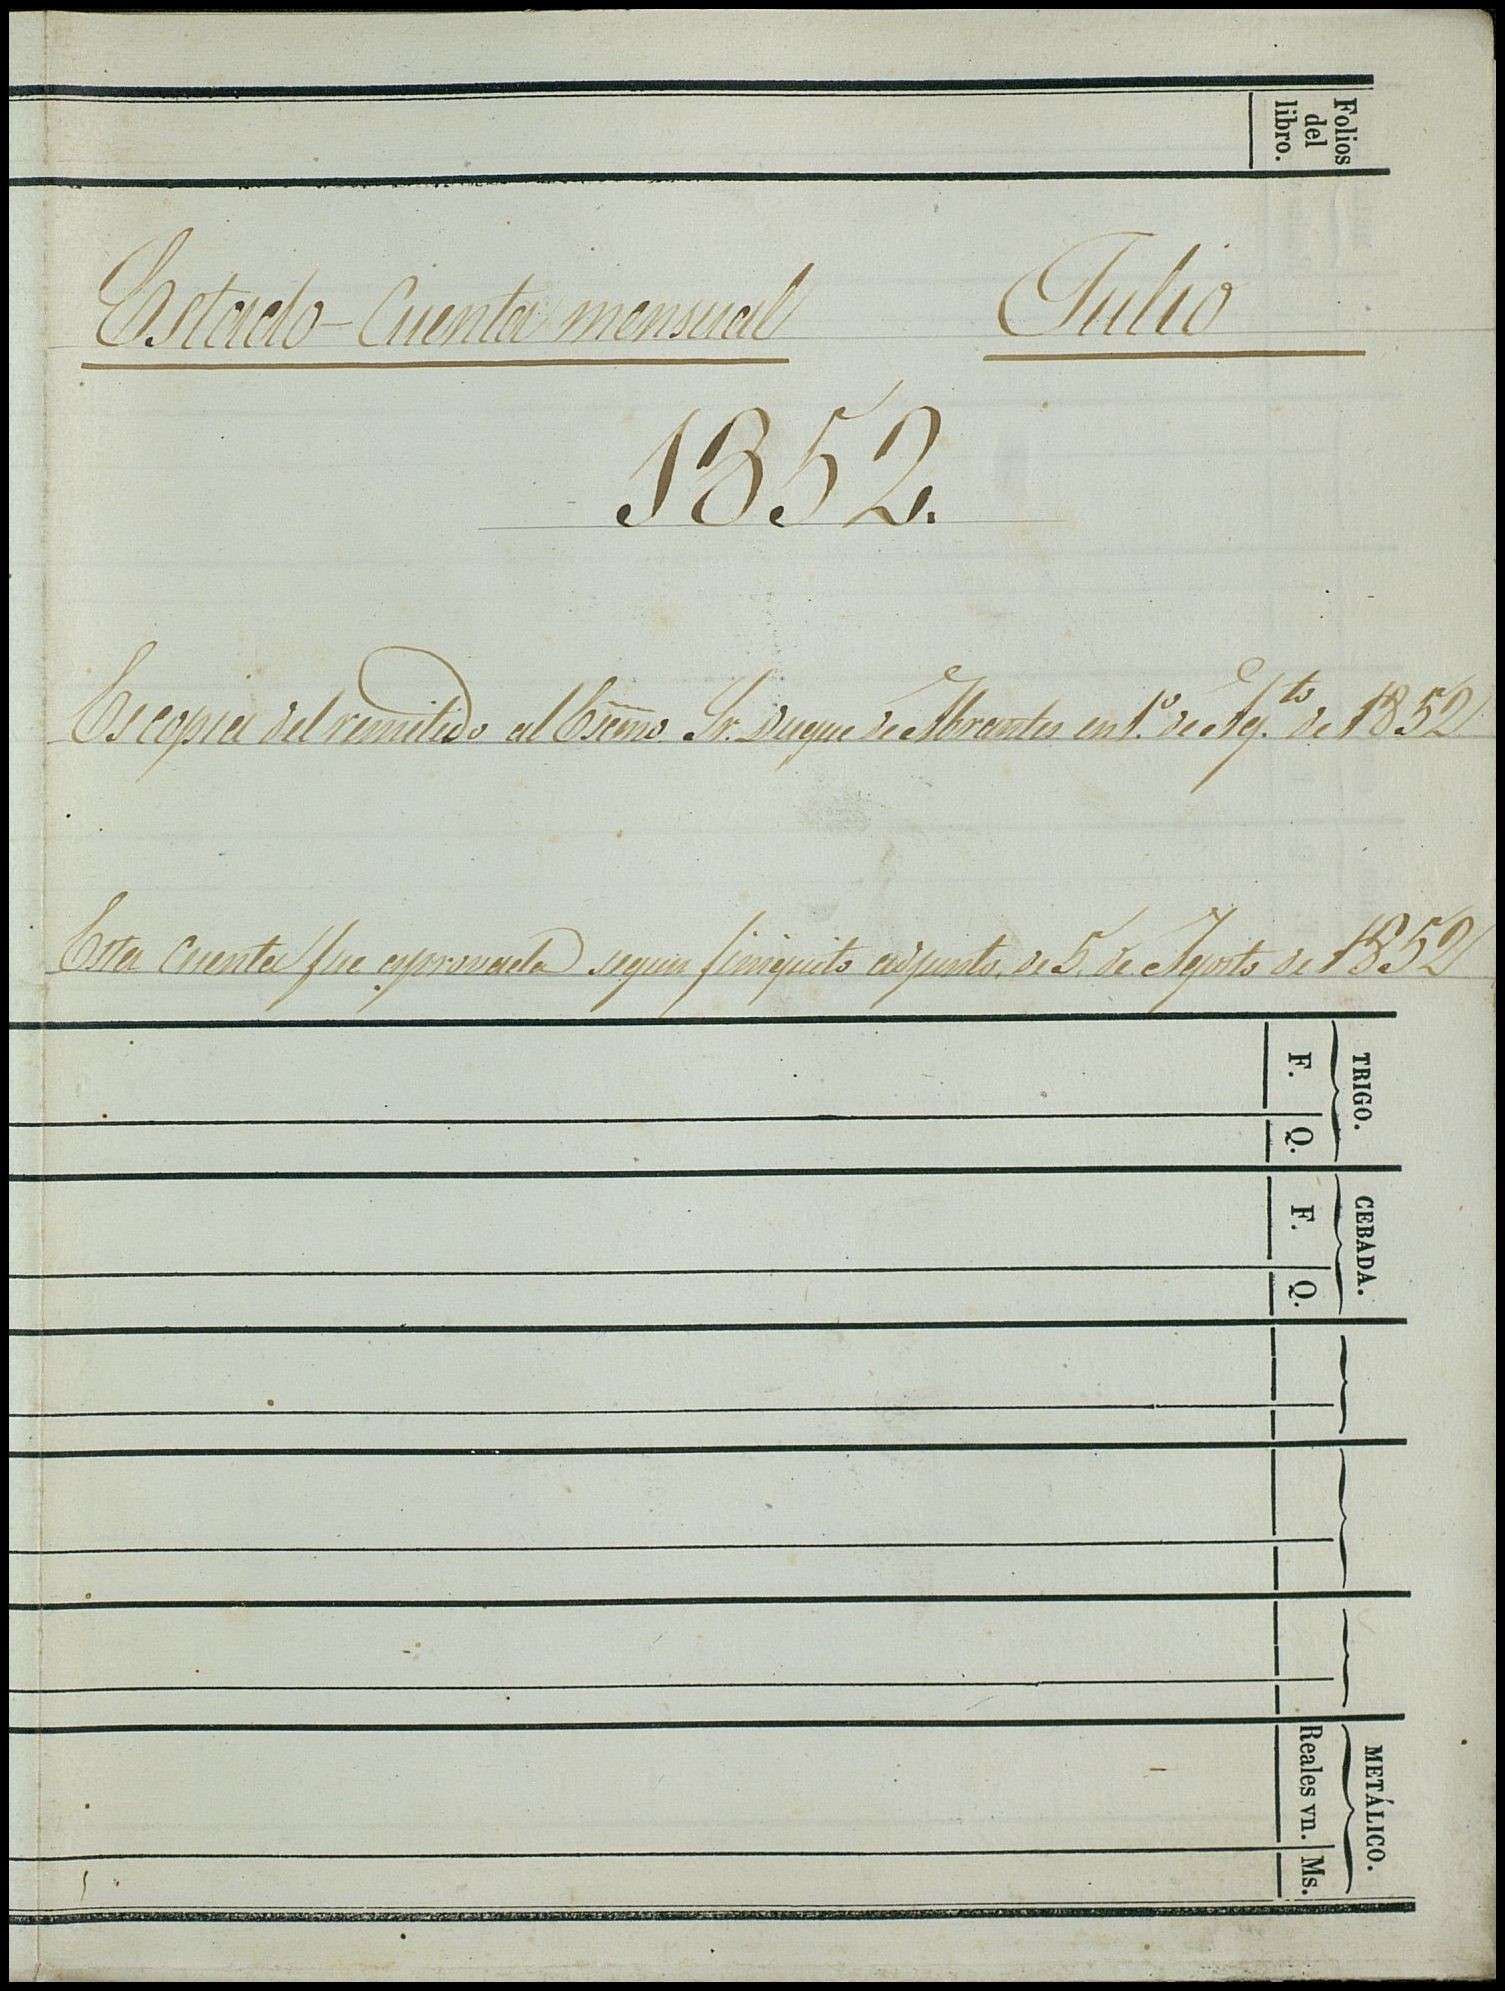 Folios
del
libro.
Estado-Cuenta mensual Julio
1852.
Es copia del remitido al Escmo. Sr. Duque de Abrantes en 1.º de Ag.to de 1852
Esta Cuenta fue aprovada segun finiquito adjunto, de 5. de Agosto de 1852
TRIGO.
F. Q.
CEBADA.
F. Q.
METÁLICO.
Reales vn. Ms.